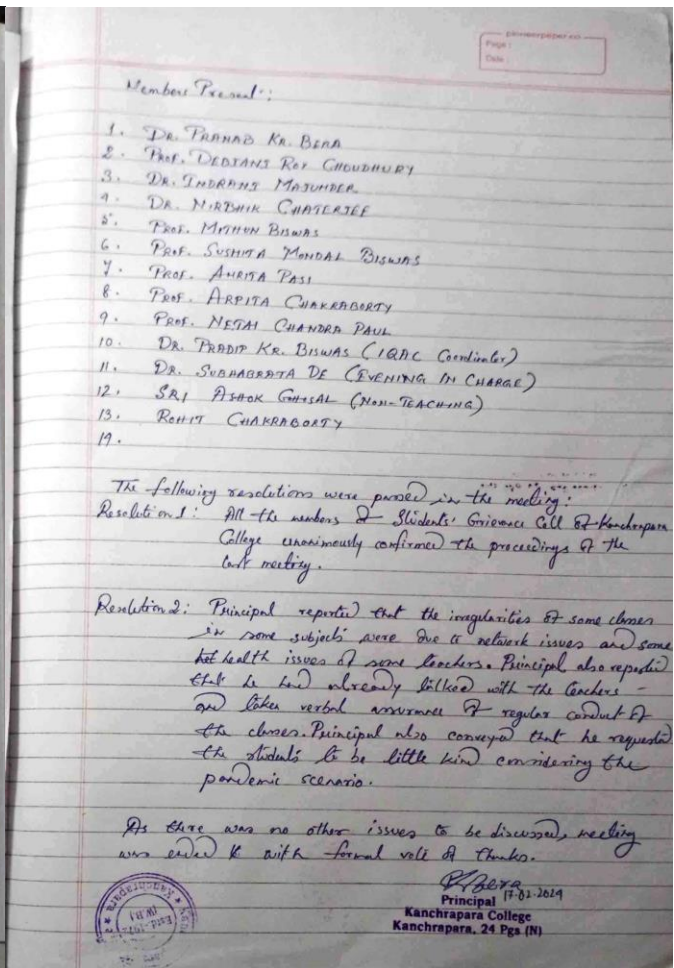 Page :
Date :
Members Present :
1. DR. PRANAB KR. BERA
2. PROF. DEBJANI ROY CHOUDHURY
3. DR. INDRANI MAJUMDER
4. DR. NIRBHIK CHATERJEE
5. PROF. MITHUN BISWAS
6. PROF. SUSHMITA MONDAL BISWAS
7. PROF. AMRITA PASI
8. PROF. ARPITA CHAKRABORTY
9. PROF. NETAI CHANDRA PAUL
10. DR. PRADIP KR. BISWAS (IQAC Coordinator)
11. DR. SUBHABRATA DE (EVENING IN CHARGE)
12. SRI ASHOK GHOSAL (NON-TEACHING)
13. ROHIT CHAKRABORTY
14.
The following resolutions were passed in the meeting :
Resolution 1 : All the members of Students' Grievance Cell of Kanchrapara
College unanimously confirmed the proceedings of the
last meeting.
Resolution 2 : Principal reported that the irregularities of some classes
in some subjects were due to network issues and some
health issues of some teachers. Principal also reported
that he had already talked with the teachers -
and taken verbal assurance of regular conduct of
the classes. Principal also conveyed that he requested
the students to be little kind considering the
pandemic scenario.
As there was no other issues to be discussed, meeting
was ended with formal vote of thanks.
17.02.2024
Principal
Kanchrapara College
Kanchrapara, 24 Pgs (N)
Kanchrapara
Estd.-1972
(W.B.)